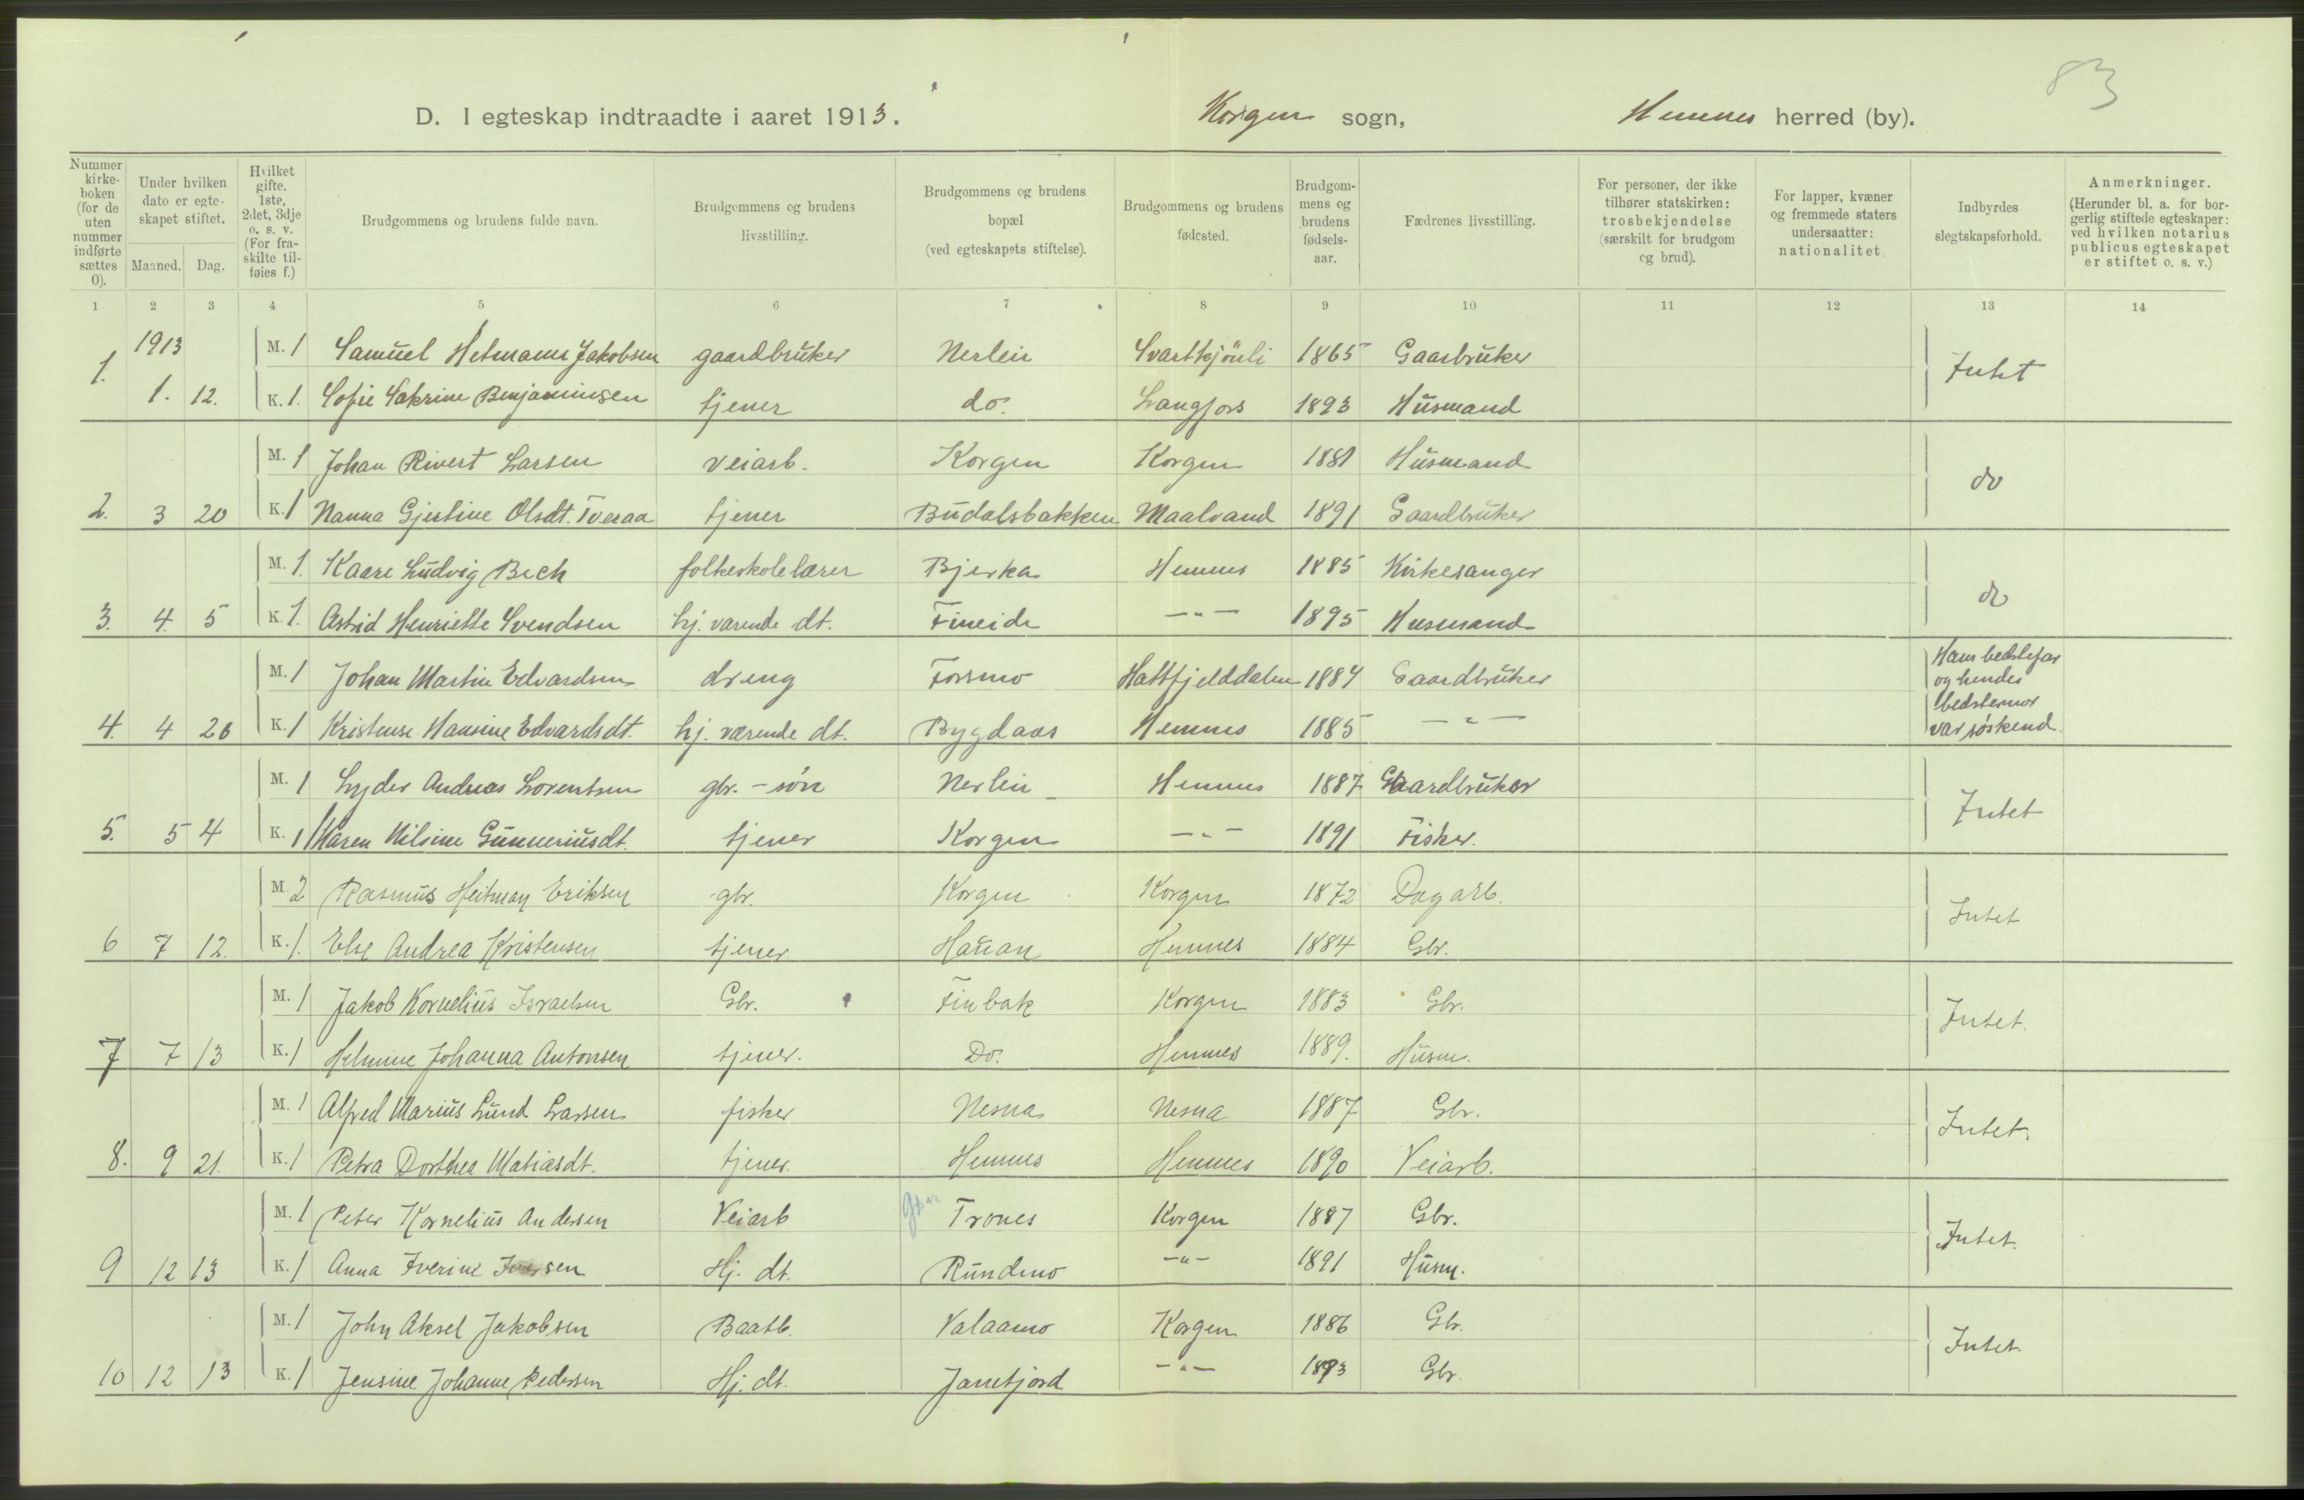 83
D. I egteskap indtraadte i aaret 1913. Korgen sogn, Hemnes herred (by).
Nummer kirkeboken (for de uten nummer indførte sættes 0).
Under hvilken dato er egteskapet stiftet.
Maaned. Dag.
Hvilket gifte. 1ste, 2det, 3dje o. s. v. (For fraskilte tilføies f.)
Brudgommens og brudens fulde navn.
Brudgommens og brudens livsstilling.
Brudgommens og brudens bopæl (ved egteskapets stiftelse).
Brudgommens og brudens fødested.
Brudgommens og brudens fødselsaar.
Fædrenes livsstilling.
For personer, der ikke tilhører statskirken: trosbekjendelse (særskilt for brudgom og brud).
For lapper, kvæner og fremmede staters undersaatter: nationalitet.
Indbyrdes slegtskapsforhold.
Anmerkninger. (Herunder bl. a. for borgerlig stiftede egteskaper: ved hvilken notarius publicus egteskapet er stiftet o. s. v.)
1 2 3 4 5 6 7 8 9 10 11 12 13 14
1913 M. 1 Samuel Hetmann Jakobsen gaardbruker Nerlein Svarttjönli 1865 Gaarbruker Intet
1. 1. 12. K. 1. Sofie Sakrine Benjaminsen tjener do. Langfors 1893 Husmand
M. 1 Johan Rivert Larsen veiarb. Korgen Korgen 1881 Husmand do
2. 3 20 K. 1 Nanna Gjertine Olsdt. Tveraa tjener Budalsbakken Maalvand 1891 Gaardbruker
M. 1. Kaare Ludvig Bech folkeskolelærer Bjerka Hemnes 1885 Kirkesanger do
3. 4. 5 K. 1. Astrid Henriette Svendsen hj. værende dt. Fineide —"— 1895 Husmand
M. 1 Johan Martin Edvardsen dreng Forsmo Hattfjelddalen 1884 Gaardbruker Hans bedstefar og hendes bedstemor var søskend.
4. 4 26 K. 1 Kristense Hansine Edvardsdt. hj. værende dt. Bygdaas Hemnes 1885 —"—
M. 1 Lyder Andreas Lorentsen gbr. - søn Nerlein Hemnes 1887 Gaardbruker Intet
5. 5 4 K. 1 Karen Nilsine Gunneriusdt. tjener Korgen —"— 1891 Fisker.
M. 2 Rasmus Heitman Eriksen gbr. Korgen Korgen 1872 Dagarb. Intet
6 7 12. K. 1. Else Andrea Kristensen tjener Hauan Hemnes 1884 Gbr.
M. 1 Jakob Kornelius Israelsen Gbr. Finbak Korgen 1883 Gbr. Intet.
7 7 13 K. 1 Helmine Johanna Antonsen tjener. Do. Hemnes 1889. Husm.
M. 1 Alfred Marius Lund Larsen fisker Nesna Nesna 1887 Gbr. Intet.
8. 9 21. K. 1 Petra Dorthea Matiasdt. tjener. Hemnes Hemnes 1890 Veiarb.
M. 1 Peter Kornelius Andersen Veiarb Trones Korgen 1887 Gbr. Intet.
9 12 13 K. 1 Anna Iverine Iversen Hj. dt. Rundmo —"— 1891 Husm.
M. 1 John Aksel Jakobsen Baatb. Valaamo Korgen 1886 Gbr. Intet.
10 12 13 K. 1 Jensine Johanne Pedersen Hj. dt. Jamtjord —"— 1893 Gbr.